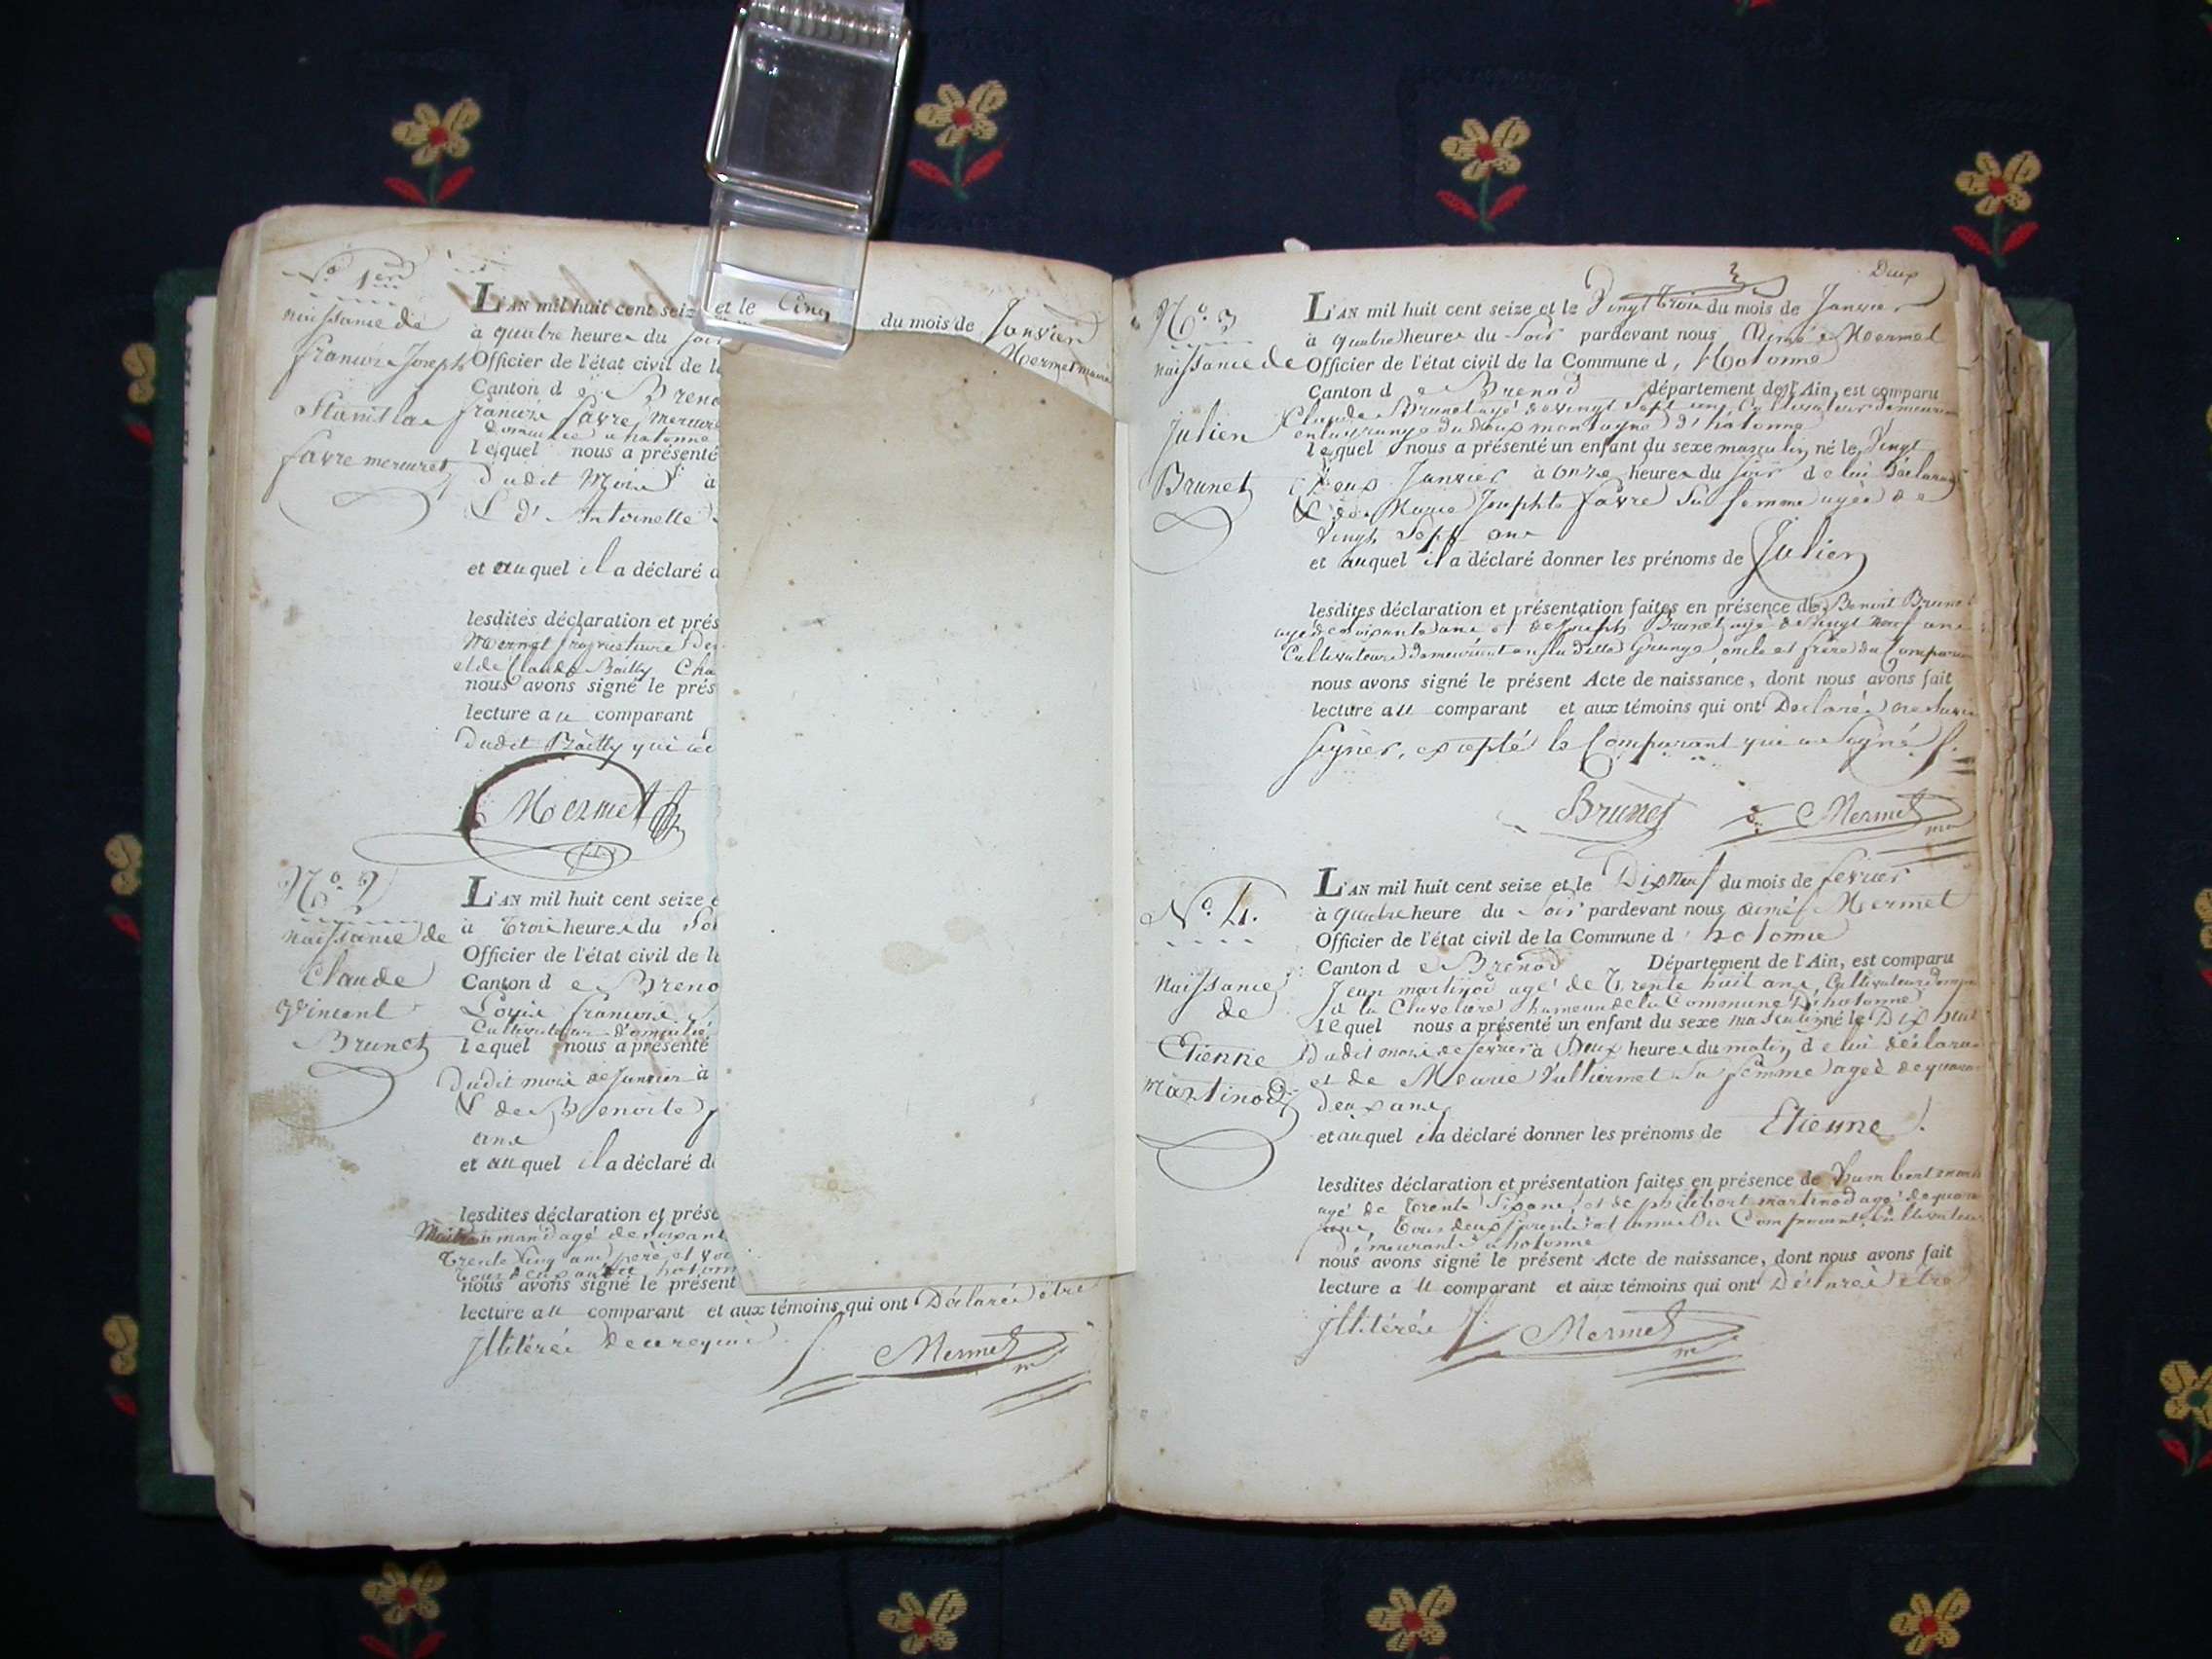 N.o 1er
naissance de
francois Joseph
Stanislas
favre mercuret
L'AN mil huit cent seiz et le Cinq du mois de Janvier
à quatre heures du soir Mermet maire
Officier de l'état civil de l
Canton d e Breno
francois favre mercure
domicilié a hotonne
lequel nous a présenté
dudit Mois à
& d'Antoinette
et auquel il a déclaré d
lesdites déclaration et prés
Mermet propriétaire
et de Claude Bailly Cha
nous avons signé le prés
lecture au comparant
dudit Bailly qui
Mermet
N.o 2
naissance de
Claude
Vincent
Brunet
L'AN mil huit cent seize e
à trois heures du soi
Officier de l'état civil de l
Canton d e Breno
Louis francois
Cultivateur domicilié
lequel nous a présenté
dudit mois de Janvier à
& de Benoite
ans
et auquel il a déclaré d
lesdites déclaration et prése
agé de soixant
trente cinq ans père et
tous deux hotonn
nous avons signé le présent
lecture au comparant et aux témoins qui ont Déclarés être
Illitérés de ce requis
Mermet
Deux
N.o 3
naissance de
Julien
Brunet
L'AN mil huit cent seize et le Vingt trois du mois de Janvier
à quatre heures du Soir pardevant nous Aimé Mermet
Officier de l'état civil de la Commune d, Hotonne
Canton d e Brenod département de l'Ain, est comparu
Claude Brunet agé de vingt Sept ans, Cultivateur demeurant
en la grange du montagne d'hotonne
lequel nous a présenté un enfant du sexe masculin né le Vingt
Deux Janvier à onze heures du soir de lui déclarant
& de Marie Josephte favre sa femme agée de
vingt Sept ans
et auquel il a déclaré donner les prénoms de Julien
lesdites déclaration et présentation faites en présence de Benoit Brunet
agé de soixante ans et de Joseph Brunet agé de vingt neuf ans
Cultivateurs demeurant en la ditte Grange, oncle et frère du Comparan
nous avons signé le présent Acte de naissance, dont nous avons fait
lecture au comparant et aux témoins qui ont Déclarés ne savoir
signer, excepté le Comparant qui a Signé
Brunet Mermet
N.o 4.
Naissance
de
Etienne
martinod
L'AN mil huit cent seize et le Dix Neuf du mois de fevrier
à quatre heure du Soir pardevant nous aimé Mermet
Officier de l'état civil de la Commune d' hotonne
Canton d e Brenod Département de l'Ain, est comparu
Jean martinod agé de Trente huit ans, Cultivateur
de la hameau de la Commune D'hotonne
lequel nous a présenté un enfant du sexe masculin né le Dix huit
Dudit mois de fevrier à Deux heures du matin de lui déclaran
et de Marie Vulliermet sa femme agée de quaran
deux ans
et auquel il a déclaré donner les prénoms de Etienne.
lesdites déclaration et présentation faites en présence de humbert
agé de trente Six ans, et de philibert martinod agé de quaran
tous deux parents et amis Du Comparant Cultivateurs
demeurants a hotonne
nous avons signé le présent Acte de naissance, dont nous avons fait
lecture a u comparant et aux témoins qui ont Déclarés être
Illitérés
Mermet